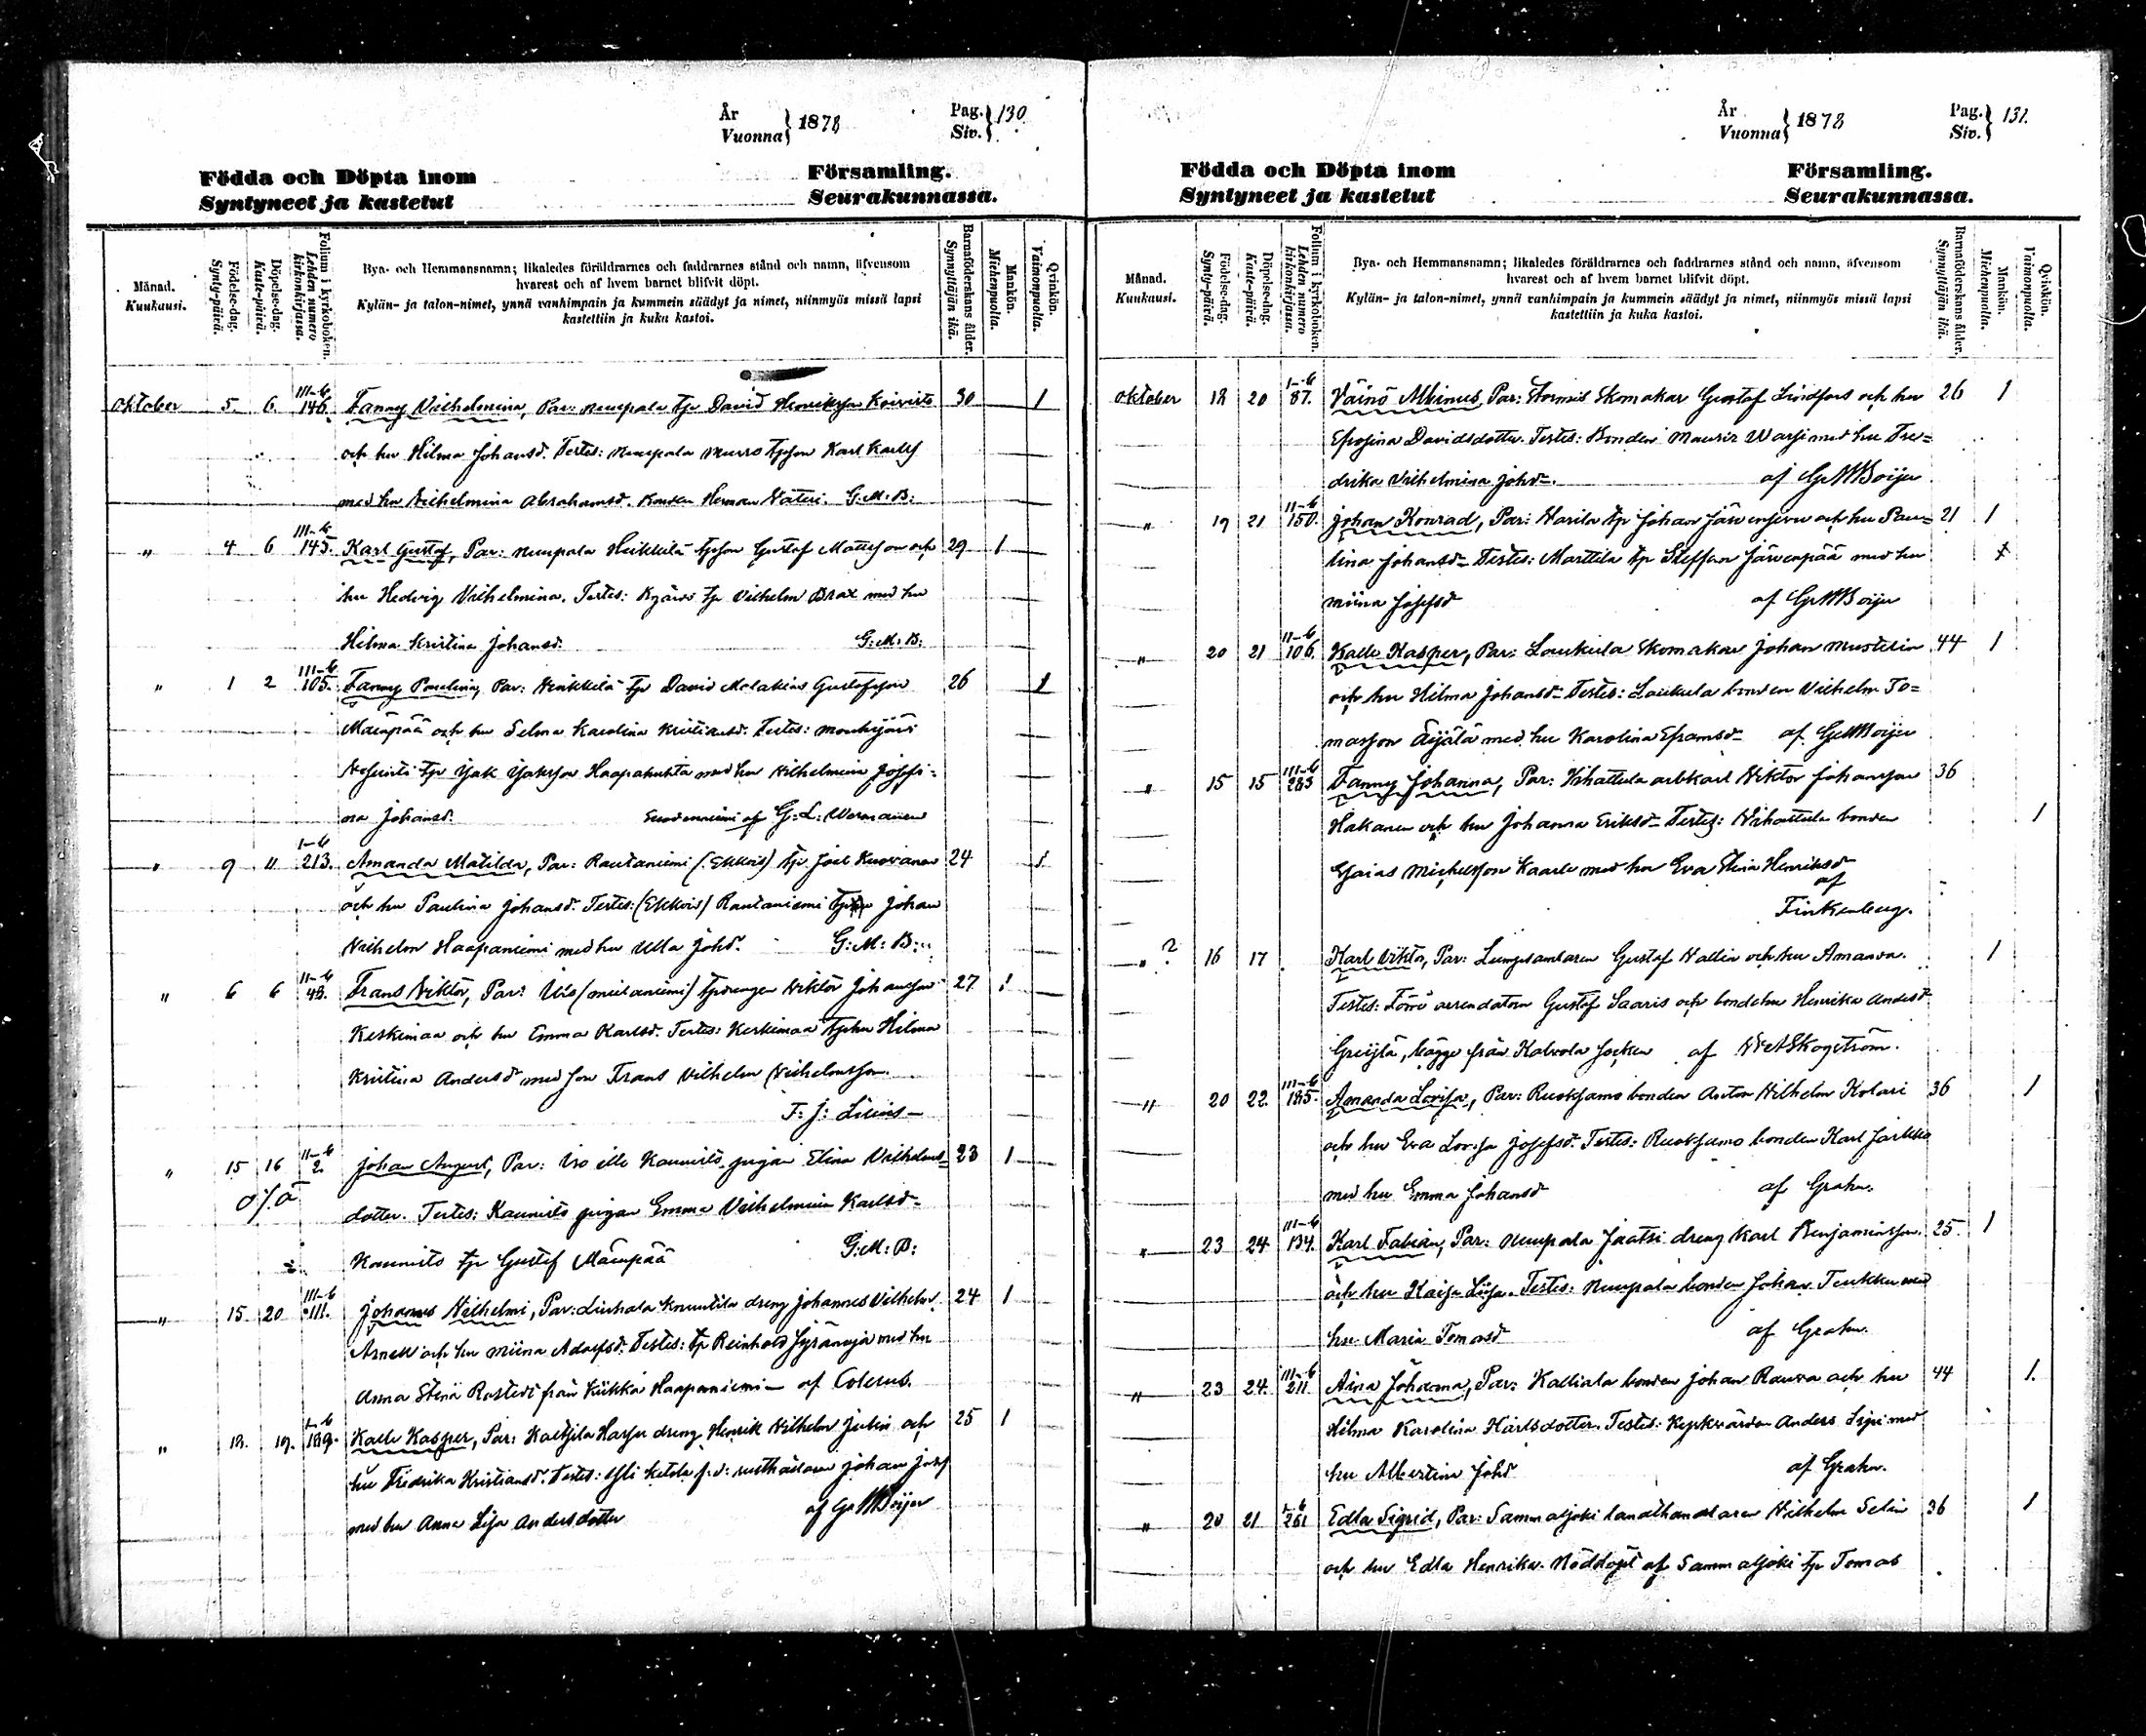 År
Vuonna } 1878
Pag.
Siv. } 130
Födda och Döpta inom Församling.
Syntyneet ja kastetut Seurakunnassa.
Månad.
Kuukausi.
Födelse-dag.
Synty-päivä.
Döpelse-dag.
Kaste-päivä.
Folium i kyrkoboken.
Lehden numero
kirkonkirjassa.
Bya- och Hemmansnamn; likaledes föräldrarnes och faddrarnes stånd och namn, äfvensom
hvarest och af hvem barnet blifvit döpt.
Kylän- ja talon-nimet, ynnä vanhimpain ja kummein säädyt ja nimet, niinmyös missä lapsi
kastettiin ja kuka kastoi.
Barnaföderskans ålder.
Synnyttäjän ikä.
Mankön.
Miehenpuolta.
Qvinkön.
Vaimonpuolta.
Oktober 5. 6. III-b 146. Fanny Vilhelmina, Par: Nuupala tp David Henriksson Koivisto 30 1
och hu Hilma Johansd. Testes: Nuupala Murro tpson Karl Karlss
med hu Vilhelmina Abrahamsd. G: M: B:
" 4 6 III-b 145. Karl Gustaf, Par: Nuupala Heikkilä tpson Gustaf Mattsson och 29 1
hu Hedvig Vilhelmina. Testes: tp Vilhelm Brax med hu
Hilma Kristina Johansd. G: M: B:
" 1 2 III-b 105. Fanny Paulina, Par: Heikkilä tp David Malakias Gustafsson 26 1
Mäenpää och hu Selma Karolina Kristiansd. Testes: Mouhijärvi
tp Isak Isaksson Haapahuhta med hu Vilhelmina Josefi-
na Johansd. af G: L: Wermanen
" 9 11 I-b 213. Amanda Matilda, Par: Rautaniemi (Ekkois) tp Joel Kuovanen 24 1
och hu Paulina Johansd. Testes: (Ekkois) Rautaniemi Johan
Vilhelm Haapaniemi med hu Ulla Johd. G: M: B:
" 6 6 II-b 48. Frans Viktor, Par: Uis (mielaniemi) tpdrengen Viktor Johansson 27 1
Keskimaa och hu Emma Karlsd. Testes: Keskimaa tphu Hilma
Kristina Andersd med son Frans Vilhelm Vilhelmsson.
F: J: Lilius
" 15 16 II-b 2. Johan August, Par: Kaunisto pigan Elina Vilhelms- 23 1
o/ä
dotter. Testes: Kaunisto pigan Emma Vilhelmina Karlsd
Kaunisto tp Gustaf Mäenpää G: M: B:
" 15 20 III-b 111. Johannes Vilhelmi, Par: Liuhala Knuutila dreng Johannes Vilhelm 24 1
Arnell och hu Miina Adolfsd. Testes: tp Reinhold med hu
Anna Stina från Kiikka Haapaniemi af Colerus.
" 18. 19. I-b 189. Kalle Kasper, Par: Kaltsila Harju dreng Henrik Vilhelm och 25 1
hu Fredrika Kristiansd. Testes: Ketola f. d. rusthållare Johan Josef
med hu Anna Lisa Andersdotter af G M Boijer
År
Vuonna } 1878
Pag.
Siv. } 131.
Födda och Döpta inom Församling.
Syntyneet ja kastetut Seurakunnassa.
Månad.
Kuukausi.
Födelse-dag.
Synty-päivä.
Döpelse-dag.
Kaste-päivä.
Folium i kyrkoboken.
Lehden numero
kirkonkirjassa.
Bya- och Hemmansnamn; likaledes föräldrarnes och faddrarnes stånd och namn, äfvensom
hvarest och af hvem barnet blifvit döpt.
Kylän- ja talon-nimet, ynnä vanhimpain ja kummein säädyt ja nimet, niinmyös missä lapsi
kastettiin ja kuka kastoi.
Barnaföderskans ålder.
Synnyttäjän ikä.
Mankön.
Miehenpuolta.
Qvinkön.
Vaimonpuolta.
Oktober 18 20 I-b 87. Väinö Albinus, Par: Stormis Skomakar Gustaf Lindfors och hu 26 1
Efrosina Davidsdotter. Testes: Bonden Mauriz Warsi med hu Fre-
drika Vilhelmina Johd. af G M Boijer
" 19 21 II-b 150. Johan Konrad, Par: Karila tp Johan Järvensivu och hu Pau- 21 1
lina Johansd. Testes: Marttila tp Steffan Järvenpää med hu
Miina Josefsd af G M Boijer
" 20 21 II-b 106. Kalle Kasper, Par: Laukula Skomakar Johan Mustelin 44 1
och hu Hilma Johansd. Testes: Laukula bonden Vilhelm To-
masson Äijälä med hu Karolina Eframsd af G M Boijer
" 15 15 III-b 283 Fanny Johanna, Par: Vihattula arbkarl Viktor Johansson 36
Hakanen och hu Johanna Eriksd. Testes: Vihattula bonden 1
Esaias Michelsson Kaarle med hu Eva Stina Henriksd
af
Finkenberg.
" ? 16 17 Karl Viktor, Par: Lumpsamlaren Gustaf Wallin och hu Amanda. 1
Testes: arrendatorn Gustaf Saaris och bondehu Henrika Andersd
bägge från Kalvola Socken af Skogström.
" 20 22. III-b 185. Amanda Lovisa, Par: Ruoksamo bonden Anton Vilhelm Kolari 36 1
och hu Eva Lovisa Josefsd. Testes: Ruoksamo bonden Karl Jaskka
med hu Emma Johansd af Grahn.
" 23 24 III-b 134. Karl Fabian, Par: Nuupala Jaatsi dreng Karl Benjaminsson 25 1
och hu Kaisa Liisa. Testes: Nuupala bonden Johan Teukku med
hu Maria Tomasd af Grahn.
" 23 24. III-b 211. Aina Johanna, Par: Kalliala bonden Johan Rauva och hu 44 1.
Hilma Karolina Karlsdotter. Testes: Kyrkvärden Anders Sipi med
hu Albertina Johd af Grahn.
" 20 21 I-b 261 Edla Sigrid, Par: Sammaljoki landthandlaren Vilhelm Selin 36 1
och hu Edla Henrika. Nöddöpt af Sammaljoki tp Tomas